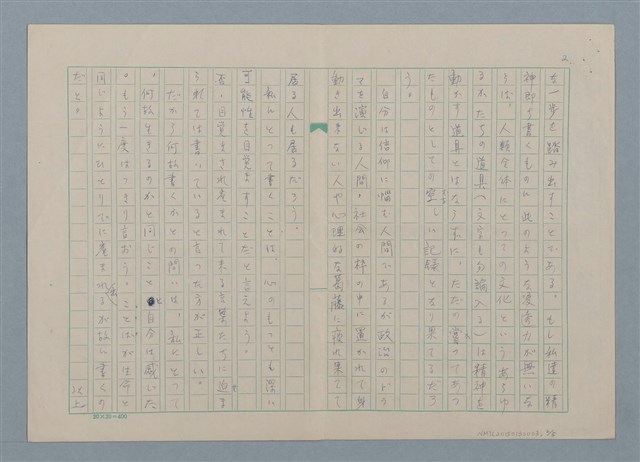 2.
な一歩を踏み出すことである。もし私達の精
神即ち書くものに此のような浸透力が無いな
らば、人類全体にとっての文化というあらゆ
るかたちの道具（文学も勿論入る）は精神を
動かす道具とはなりえずに、ただの嘗ってあっ
たものとしての空しい記録となり果てるだろ
う。
自分は信仰に悩む人間であるが政治のドラ
マを演じる人間・社会の枠の中に置かれて身
動き出来ない人や心理的な葛藤に疲れ果てて
居る人も居るだろう。
私にとって書くことは、心のもっとも深い
可能性を目覚ますことだと言えよう。
否、目覚まされ産まれて来る言葉たちに迫ま
られては書いていると言った方が正しい。
だから何故書くかとの問いは、私にとって
、何故生きるのかと同じことと自分は感じた
。もう一度はっきり言おう。ことばが生命と
同じようにひとりでに産まれるが故に書くの
だと。
以上
20×20=400